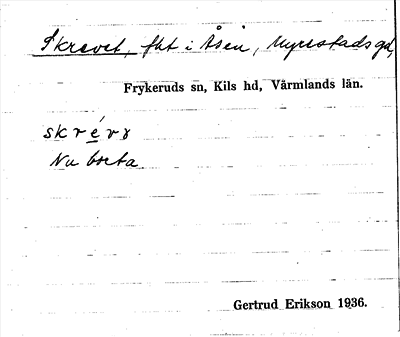 Skrevet, fht i Åsen, Myrestads gd,
Frykeruds sn, Kils hd, Värmlands län.
skrévɤ
Nu borta
Gertrud Erikson 1936.